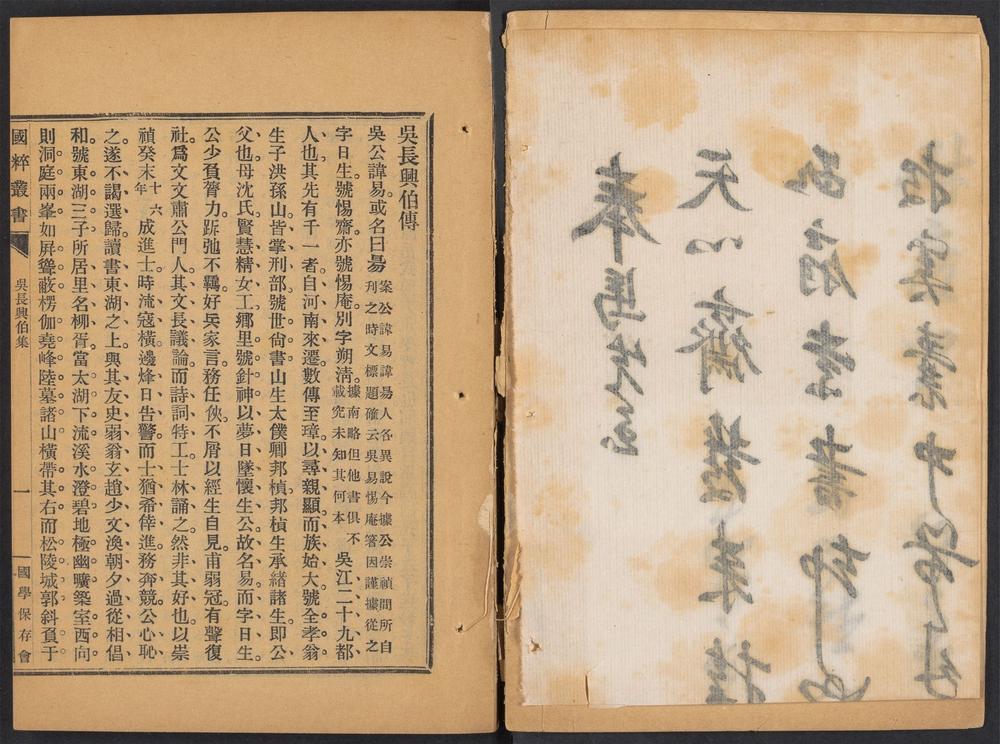 吳長興伯傳
吳公諱易或名曰昜案公諱易諱昜人各異說今據公崇禎間所自刋之時文標題確云吳易惕庵署因謹據從之
字日生號惕齋亦號惕庵別字朔淸據南略但他書俱不載究未知其何本吳江二十九都
人也其先有千一者自河南來遷數傳至璋以尋親顯而族始大號全孝翁
生子洪孫山皆掌刑部號世尙書山生太僕卿邦楨邦楨生承緒諸生卽公
父也母沈氏賢慧精女工鄕里號針神以夢日墜懷生公故名易而字日生
公少負膂力跅弛不羈好兵家言務任俠不屑以經生自見甫弱冠有聲復
社爲文文肅公門人其文長議論而詩詞特工士林誦之然非其好也以崇
禎癸未十六年成進士時流寇橫邊烽日告警而士猶希倖進務奔競公心恥
之遂不謁選歸讀書東湖之上與其友史弱翁玄趙少文渙朝夕過從相倡
和號東湖三子所居里名柳胥當太湖下流溪水澄碧地極幽曠築室西向
則洞庭兩峯如屏聳蔽楞伽堯峰陸墓諸山橫帶其右而松陵城郭斜負于
國粹叢書 吳長興伯集 一 國學保存會